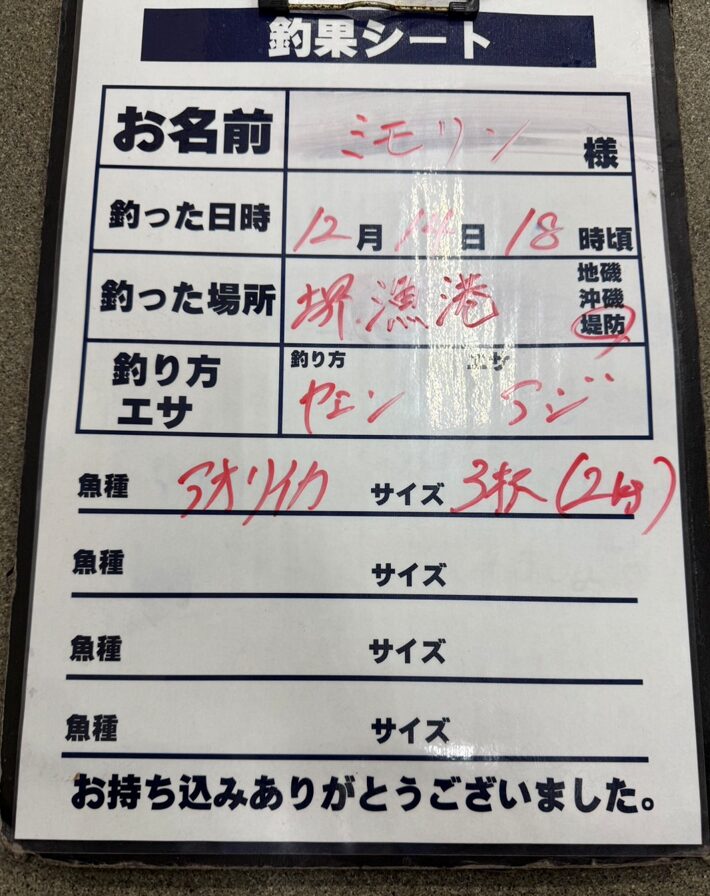 釣果シート
お名前 ミモリン 様
釣った日時 12月14日18時頃
釣った場所 堺漁港 地磯
沖磯
堤防
釣り方 エサ
釣り方
エサ
ヤエン アジ
魚種 アオリイカ サイズ 3杯(2kg)
魚種 サイズ
魚種 サイズ
魚種 サイズ
お持ち込みありがとうございました。